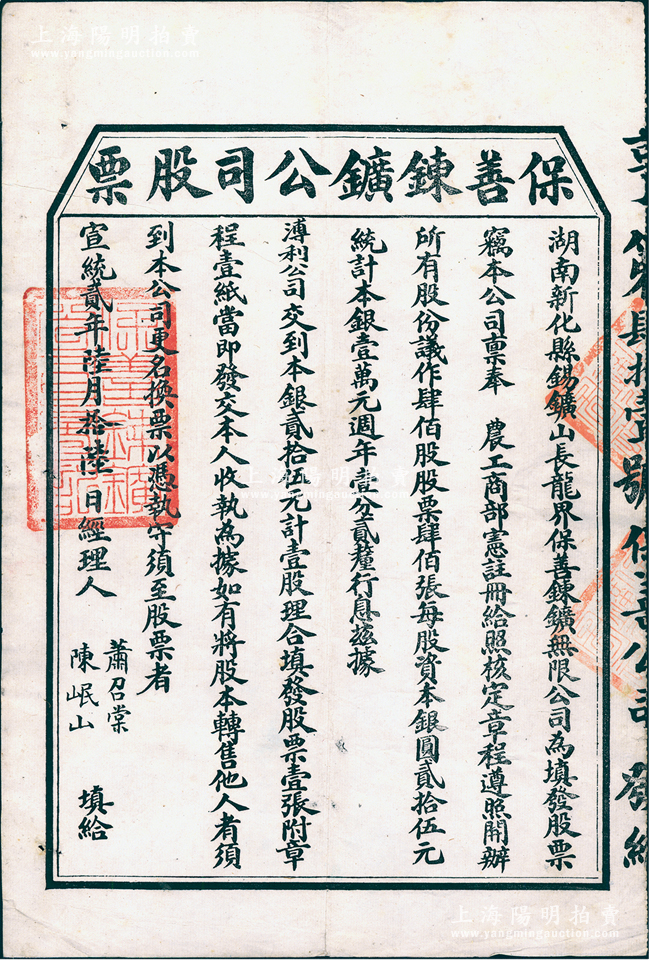 上海陽明拍賣
www.yangmingauction.com
保善鍊鑛公司股票
湖南新化縣錫鑛山長龍界保善鍊鑛無限公司為填發股票
竊本公司稟奉 農工商部憲註冊給照核定章程遵照開辦
所有股份議作肆佰股股票肆佰張每股資本銀圓貳拾伍元
統計本銀壹萬元週年壹分貳釐行息茲據
溥利公司交到本銀貳拾伍元計壹股理合填發股票壹張附章
程壹紙當即發交本人收執為據如有將股本轉售他人者須
到本公司更名換票以憑執守須至股票者
宣統貳年陸月拾陸日經理人 蕭召棠 陳岷山 填給
肆拾壹號保善公司發給
上海陽明拍賣
www.yangmingauction.com
上海陽明拍賣
www.yangmingauction.com